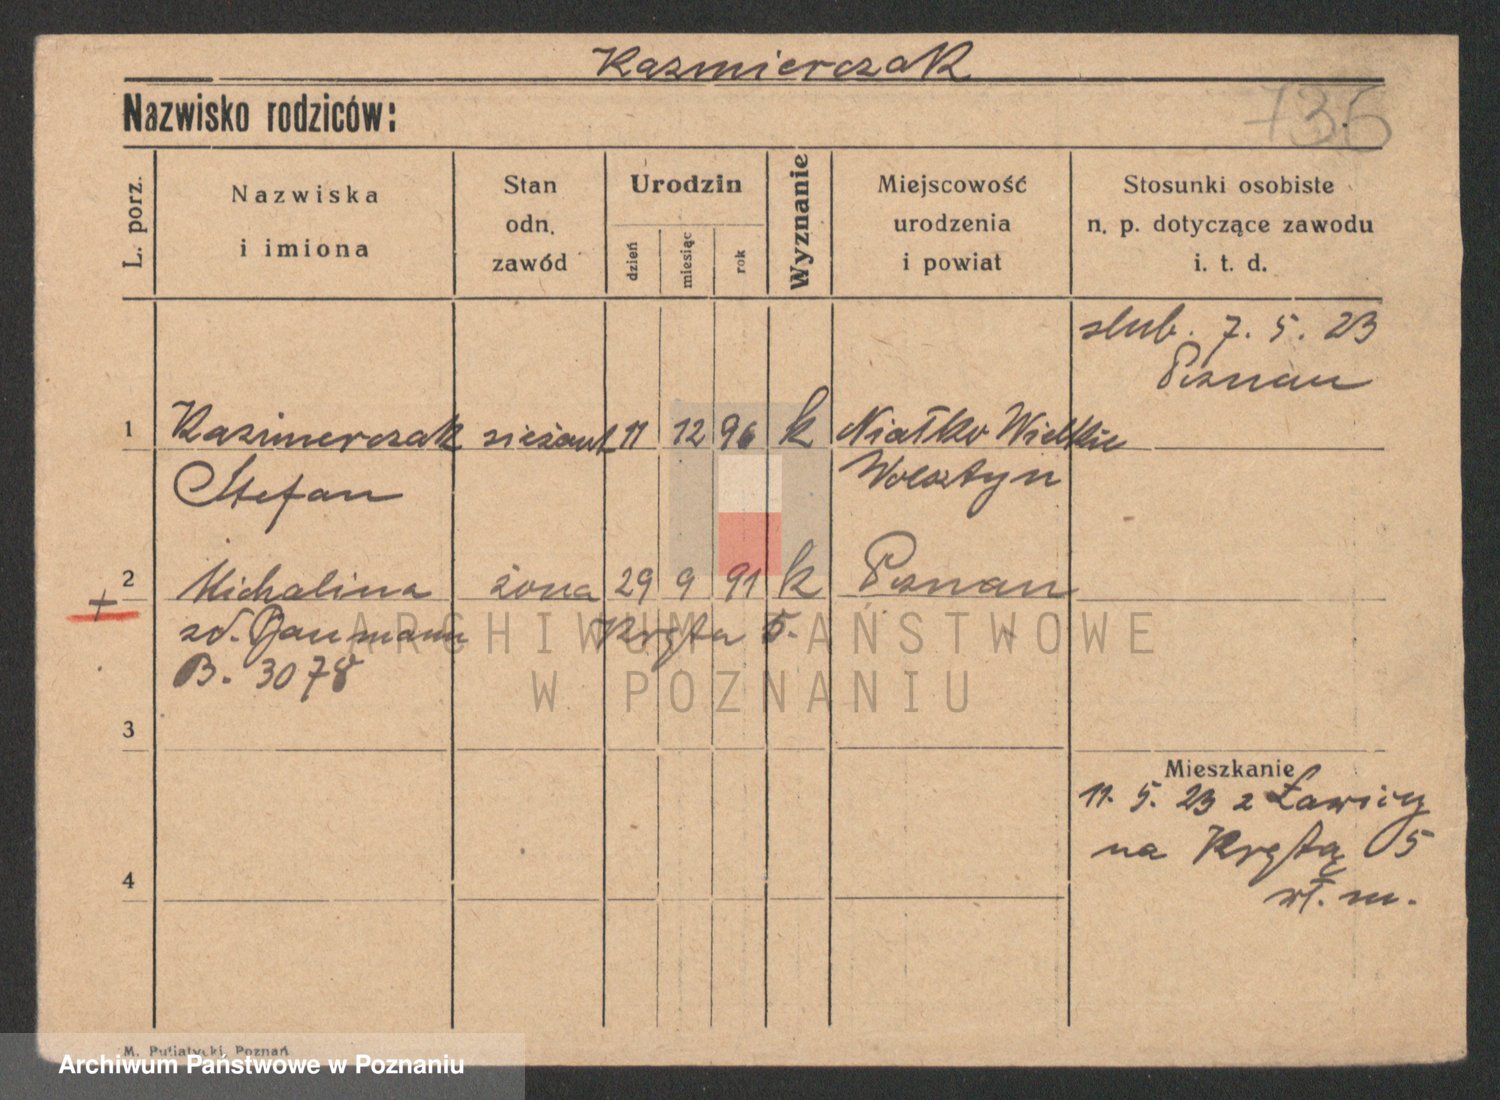 Kazmierczak
Nazwisko rodziców:
736
L. porz.
Nazwiska
i imiona
Stan
odn.
zawód
Urodzin
dzień
miesiąc
rok
Wyznanie
Miejscowość
urodzenia
i powiat
Stosunki osobiste
n. p. dotyczące zawodu
i. t. d.
slub. 7. 5. 23
Poznan
1 Kazimerczak sieżant 11 12 96 k Niałko Wielkie
Stefan
Wolsztyn
2 Michalina żona 29 9 91 k Poznan
+
zd. Baumann Kręta 5.
B. 3078
ARCHIWUM PAŃSTWOWE
W POZNANIU
3
Mieszkanie
11. 5. 23 z Ławicy
na Krętą 5
wł. m.
4
M. Putiatycki, Poznań
Archiwum Państwowe w Poznaniu